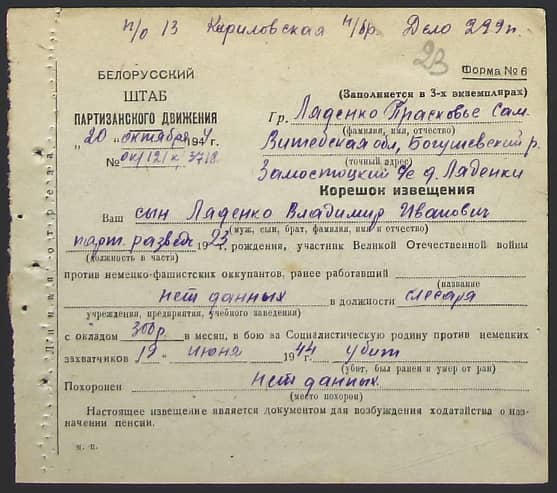 п/о 13 Кириловская п/бр. Дело 299п.
23
БЕЛОРУССКИЙ
ШТАБ
ПАРТИЗАНСКОГО ДВИЖЕНИЯ
„20 „ октября 1944 г.
№ 0кд/12/к/3718
Форма № 6
(Заполняется в 3-х экземплярах)
Гр. Ладенко Прасковье Сам.
(фамилия, имя, отчество)
Витебская обл, Богушевский р.
(точный адрес)
Замостоцкий с/с д. Ладенки
Корешок извещения
Ваш сын Ладенко Владимир Иванович
(муж, сын, брат, фамилия, имя и отчество)
парт. развед. 1923 г. рождения, участник Великой Отечественной войны
(должность в части)
против немецко-фашистских оккупантов, ранее работавший
(название
нет данных в должности слесаря
учреждения, предприятия, учебного заведения)
с окладом 300р. в месяц, в бою за Социалистическую родину против немецких
захватчиков 19 „ июня 1944 г. убит
(убит, был ранен и умер от ран)
Похоронен нет данных
(место похорон)
Настоящее извещение является документом для возбуждения ходатайства о на-
значении пенсии.
м. п.
Линия отреза